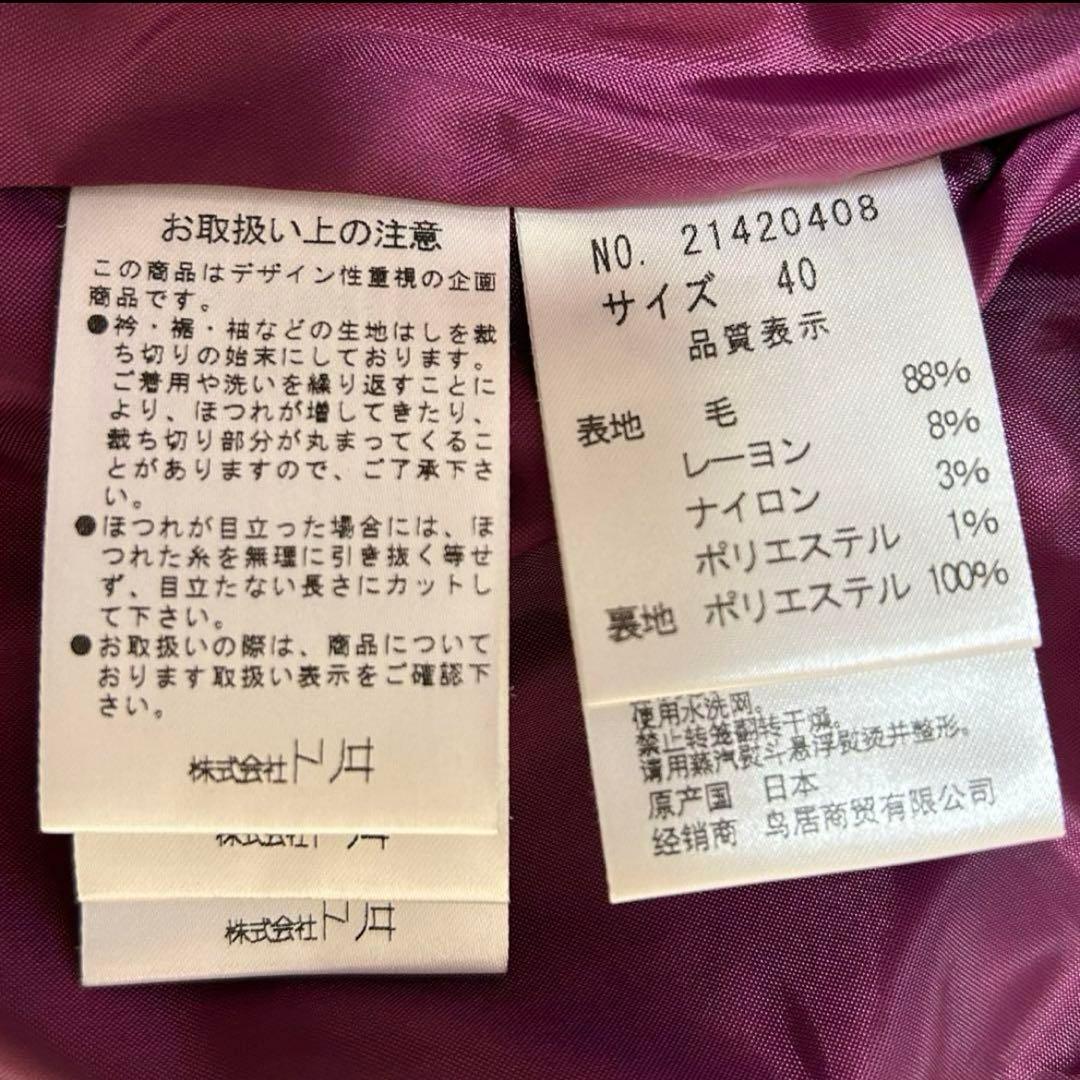 お取扱い上の注意
この商品はデザイン性重視の企画
商品です。
●衿・裾・袖などの生地はしを裁
ち切りの始末にしております。
ご着用や洗いを繰り返すことに
より、ほつれが増してきたり、
裁ち切り部分が丸まってくるこ
とがありますので、ご了承下さ
い。
●ほつれが目立った場合には、ほ
つれた糸を無理に引き抜く等せ
ず、目立たない長さにカットし
て下さい。
●お取扱いの際は、商品について
おります取扱い表示をご確認下
さい。
株式会社トリヰ
株式会社トリヰ
株式会社トリヰ
NO. 21420408
サイズ 40
品質表示
表地 毛 88%
レーヨン 8%
ナイロン 3%
ポリエステル 1%
裏地 ポリエステル 100%
使用水洗网。
禁止转笼翻转干燥。
请用蒸汽熨斗悬浮熨烫并整形。
原产国 日本
经销商 鸟居商贸有限公司